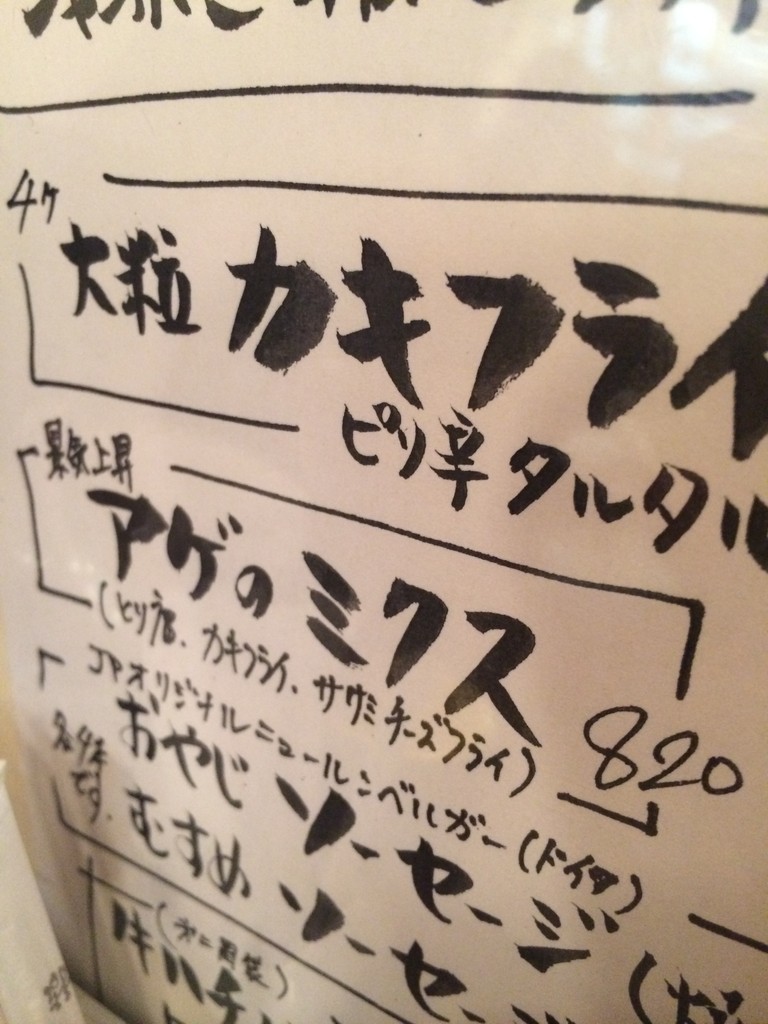 4ケ
大粒 カキフライ
ピリ辛タルタル
景気上昇
アゲの ミクス
(とり唐、カキフライ、ササミチーズフライ)
820
JPオリジナルニュールンベルガー(ドイツ)
おやじ ソーセージ
各4本です。
むすめ ソーセージ